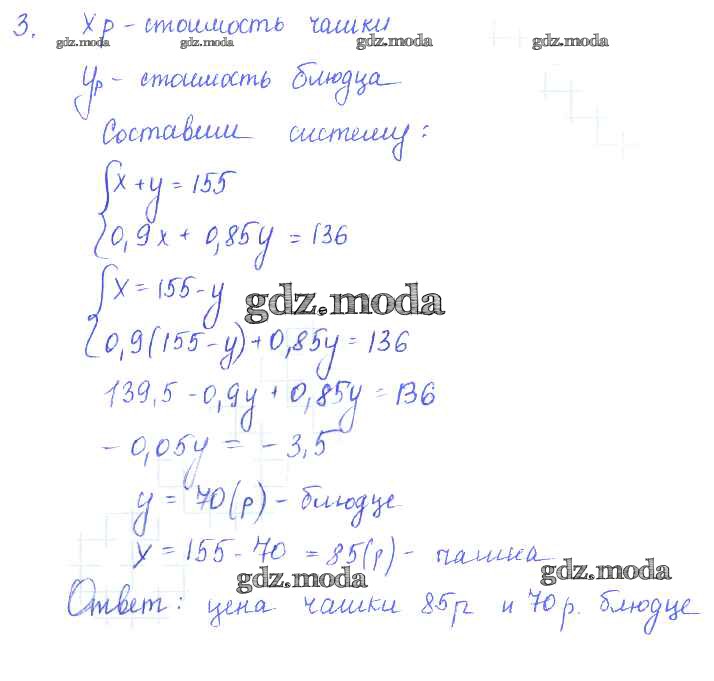 3. Xр - стоимость чашки
gdz.moda gdz.moda gdz.moda gdz.moda
Yр - стоимость блюдца
Составим систему:
x + y = 155
0,9x + 0,85y = 136
x = 155 - y
gdz.moda
0,9(155 - y) + 0,85y = 136
139,5 - 0,9y + 0,85y = 136
- 0,05y = - 3,5
y = 70(р) - блюдце
x = 155 - 70 = 85(р) - чашка
gdz.moda gdz.moda
Ответ: цена чашки 85р и 70р. блюдце